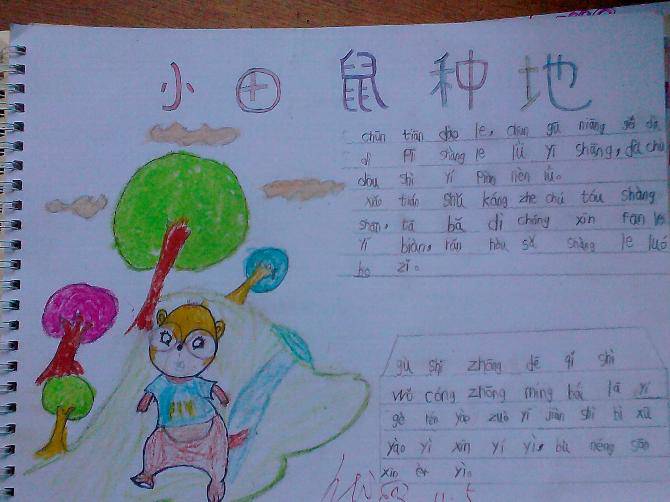 小田鼠种地
chūn tiān dào le, chūn gū niāng gěi dà
dì pī shàng le lǜ yī shāng, dà chù
dōu shì yí piàn lǜ
xiǎo tián shǔ káng zhe chú tóu shàng
shān, tā bǎ dì chóng xīn fān le
yí biàn, rán hòu sǎ shàng le luó
bo zǐ。
gù shì zhōng dē qǐ shì
wǒ cóng zhōng míng bái le yí
gè rén yào zuò yí jiàn shì bì xū
yào yì xīn yí yì, bù néng sān
xīn èr yì。